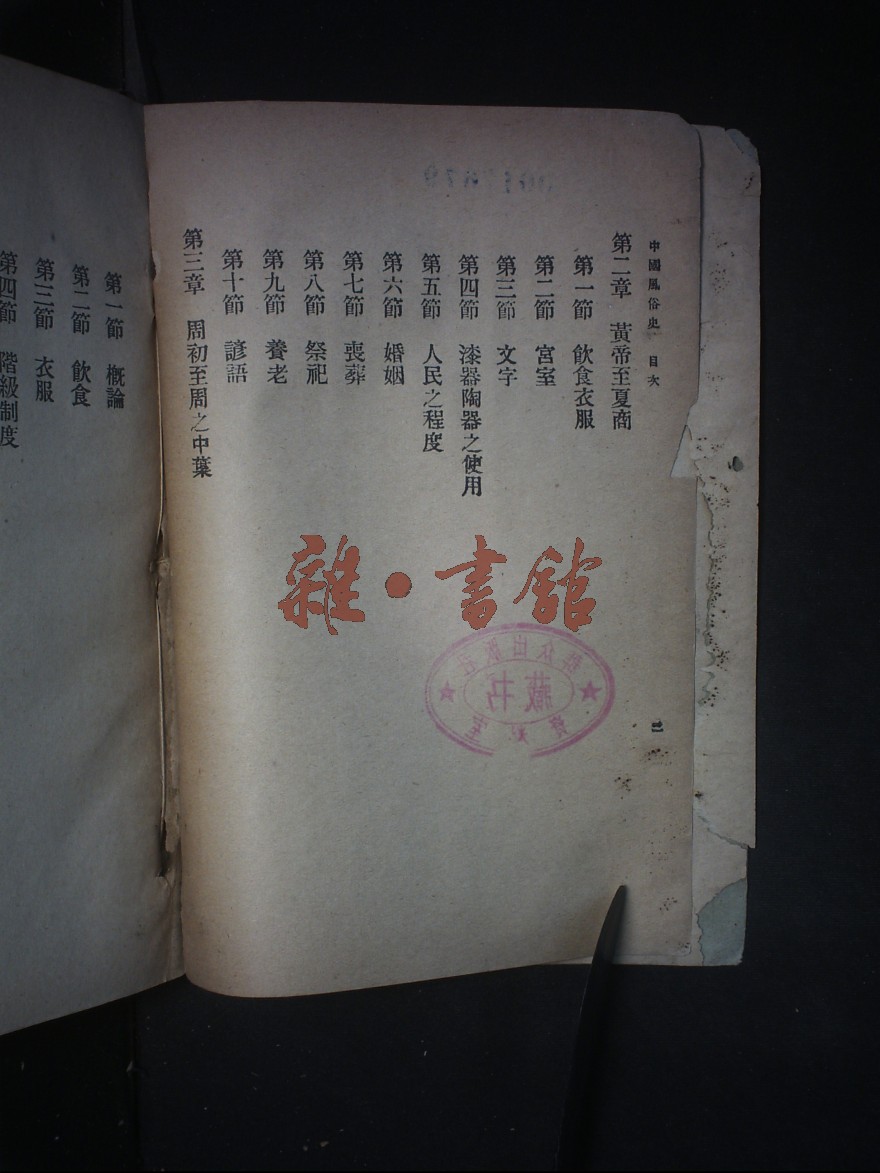 中國風俗史 目次 二
第二章 黃帝至夏商
第一節 飲食衣服
第二節 宮室
第三節 文字
第四節 漆器陶器之使用
第五節 人民之程度
第六節 婚姻
第七節 喪葬
第八節 祭祀
第九節 養老
第十節 諺語
第三章 周初至周之中葉
第一節 概論
第二節 飲食
第三節 衣服
第四節 階級制度
雜·書館
群众出版社
藏书
資料室